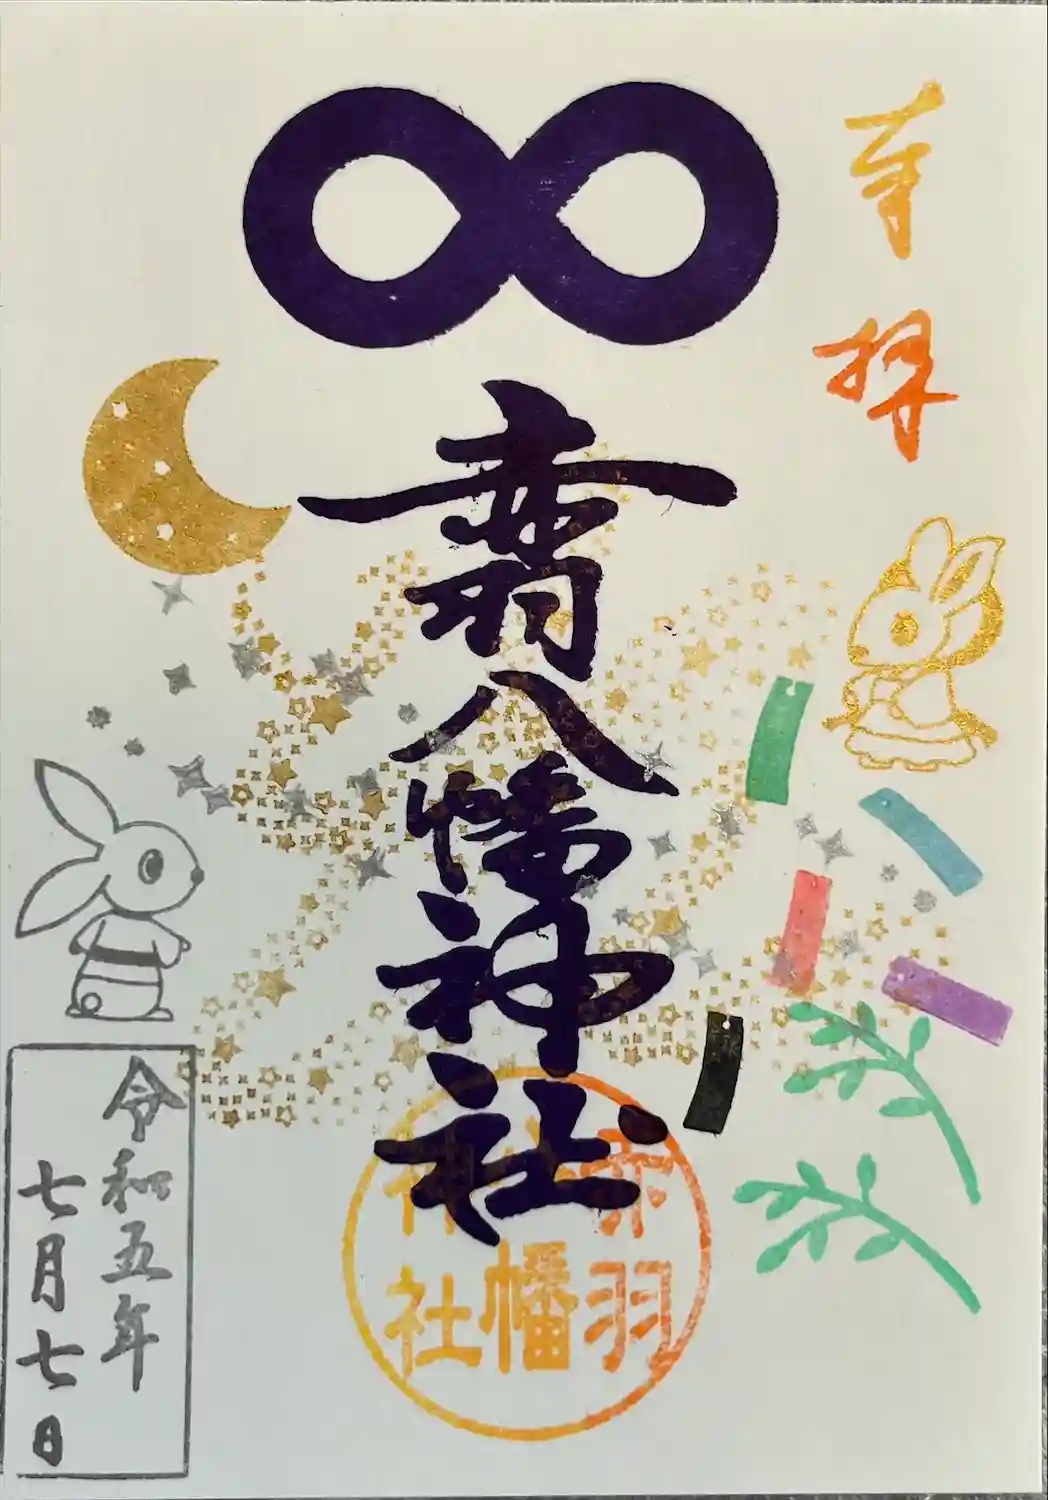 奉拝
赤羽八幡神社
赤羽
八幡
神社
令和五年
七月七日